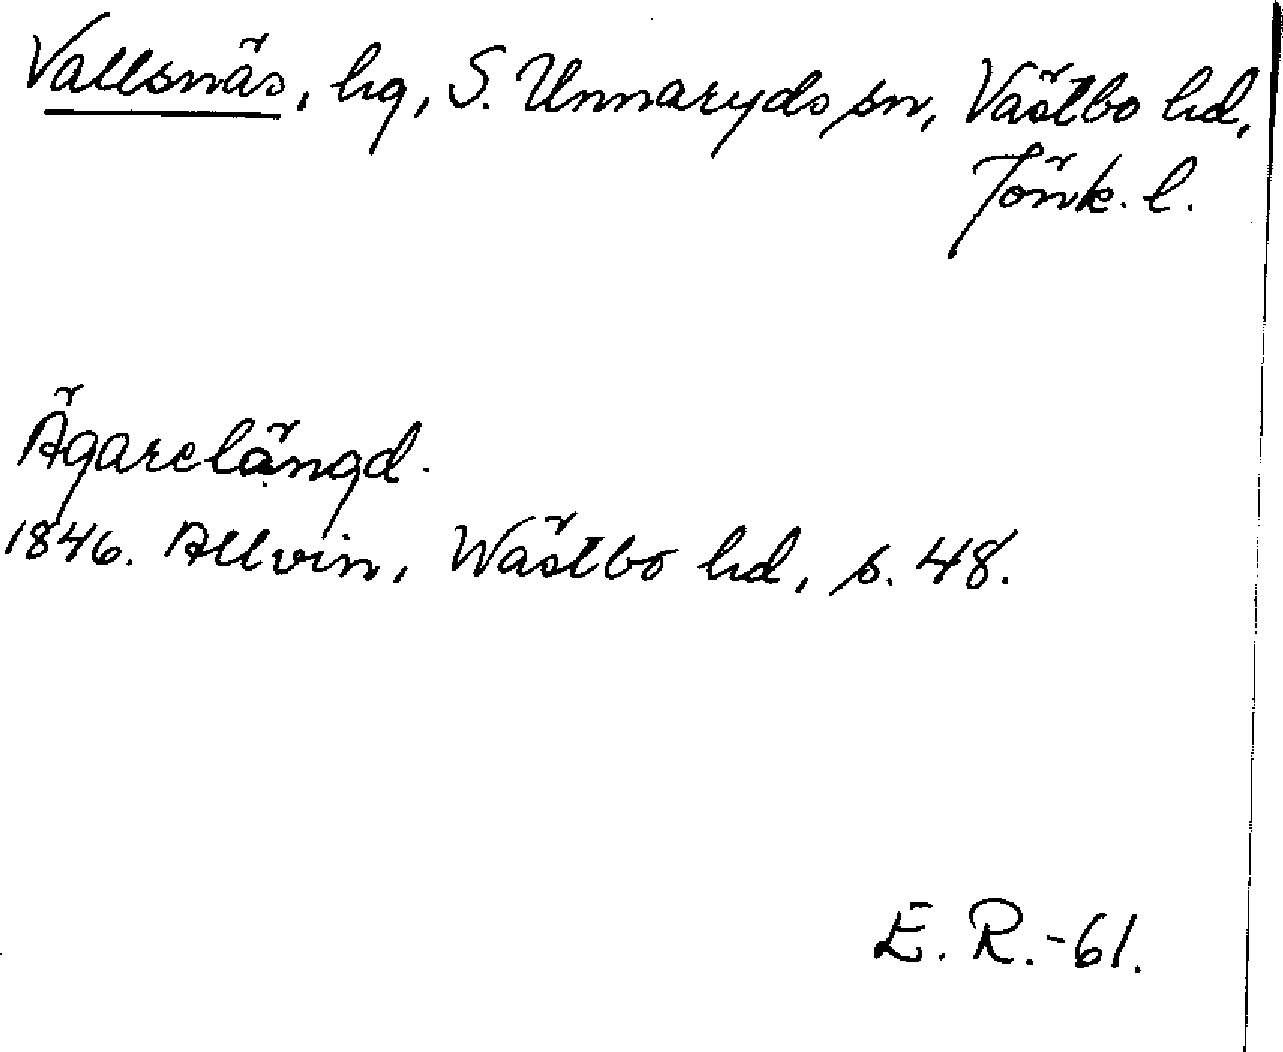 Vallsnäs, hg, S. Unnaryds sn, Västbo hd,
Jönk. l.
Ägarelängd.
1846. Allvin, Wästbo hd, s. 48.
E. R.-61.